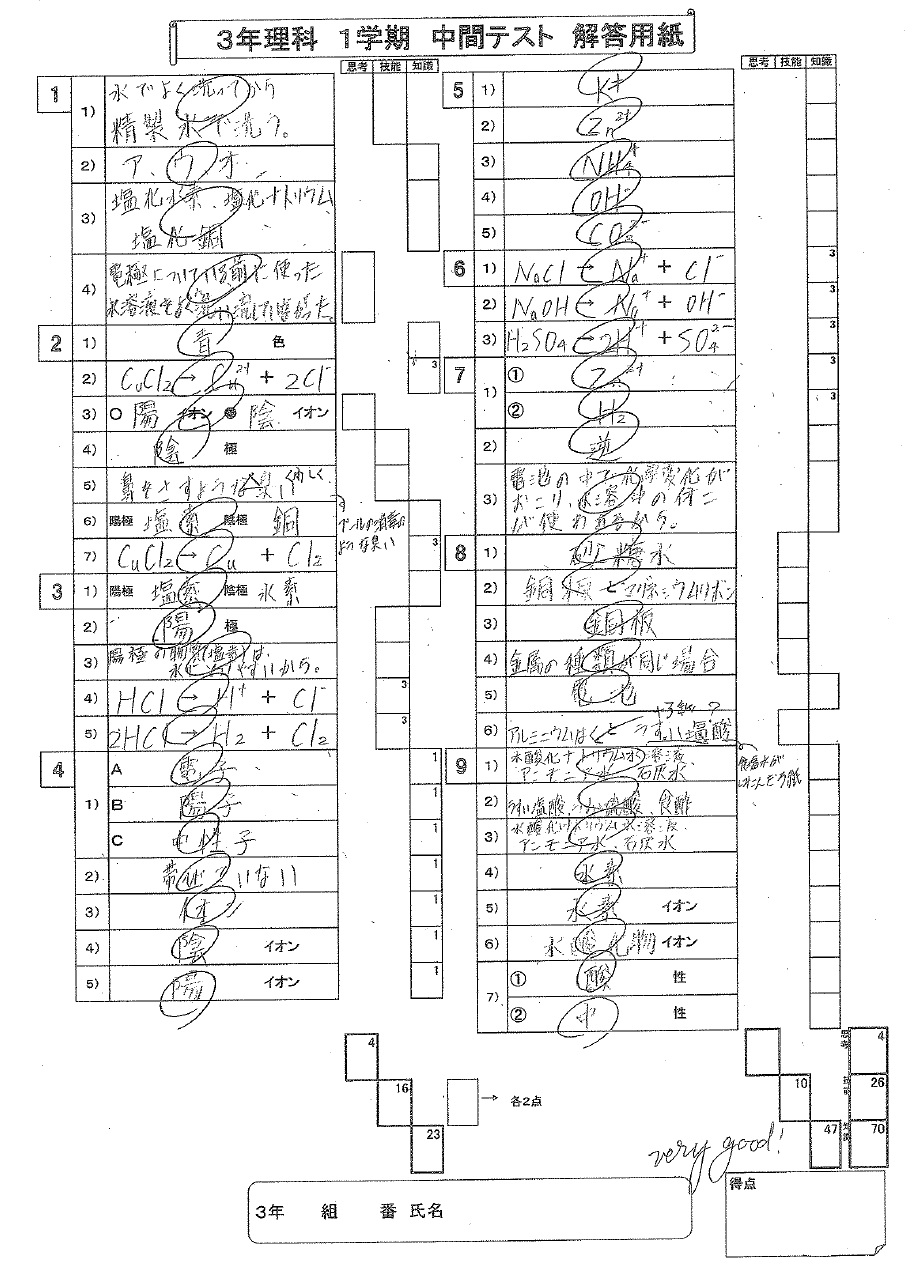 3年理科 1学期 中間テスト 解答用紙
思考 技能 知識
1
1) 水でよく洗ってから
精製水で洗う。
2) ア、ウ、オ
3) 塩化水素、塩化ナトリウム
塩化銅
4) 電極についている前に使った
水溶液をよく洗い流し
2
1) 青 色
2) CuCl2 → Cu2+ + 2Cl-
3) ○ 陽 イオン ● 陰 イオン
4) 陰 極
5) 鼻をさすような臭い
くわしく
プールの消毒の
ような臭い
6) 陽極 塩素 陰極 銅
7) CuCl2 → Cu + Cl2
3
1) 陽極 塩素 陰極 水素
2) 陽極
3) 陽極の物質(塩素)は、
水にとけやすいから。
4) HCl → H+ + Cl-
5) 2HCl → H2 + Cl2
4
1) A 電子
B 陽子
C 中性子
2) 帯びていない
3) イオン
4) 陰 イオン
5) 陽 イオン
3
3
3
3
1
1
1
1
1
1
1
4
16
23
→ 各2点
思考 技能 知識
5
1) K+
2) Zn2+
3) NH4+
4) OH-
5) CO32-
6
1) NaCl → Na+ + Cl-
2) NaOH → Na+ + OH-
3) H2SO4 → 2H+ + SO42-
7
1) ① Zn2+
② H2
2) 逆
3) 電池の中で化学変化が
おこり、水溶
が使われるから。
8
1) 砂糖水
2) 銅線とマグネシウムリボン
3) 銅板
4) 金属の種類が同じ場合
5) 電池
6) アルミニウムはくと うすい塩酸
ろ紙?
食塩水が
しみこんだろ紙
9
1) 水酸化ナトリウム水溶液、
アンモニア水、石灰水
2) うすい塩酸、うすい硫酸、食酢
3) 水酸化ナトリウム水溶液、
アンモニア水、石灰水
4) 水素
5) 水素 イオン
6) 水酸化物 イオン
7) ① 酸 性
② 中 性
3
3
3
3
3
10
47
思考 4
技能 26
知識 70
very good!
3年 組 番 氏名
得点